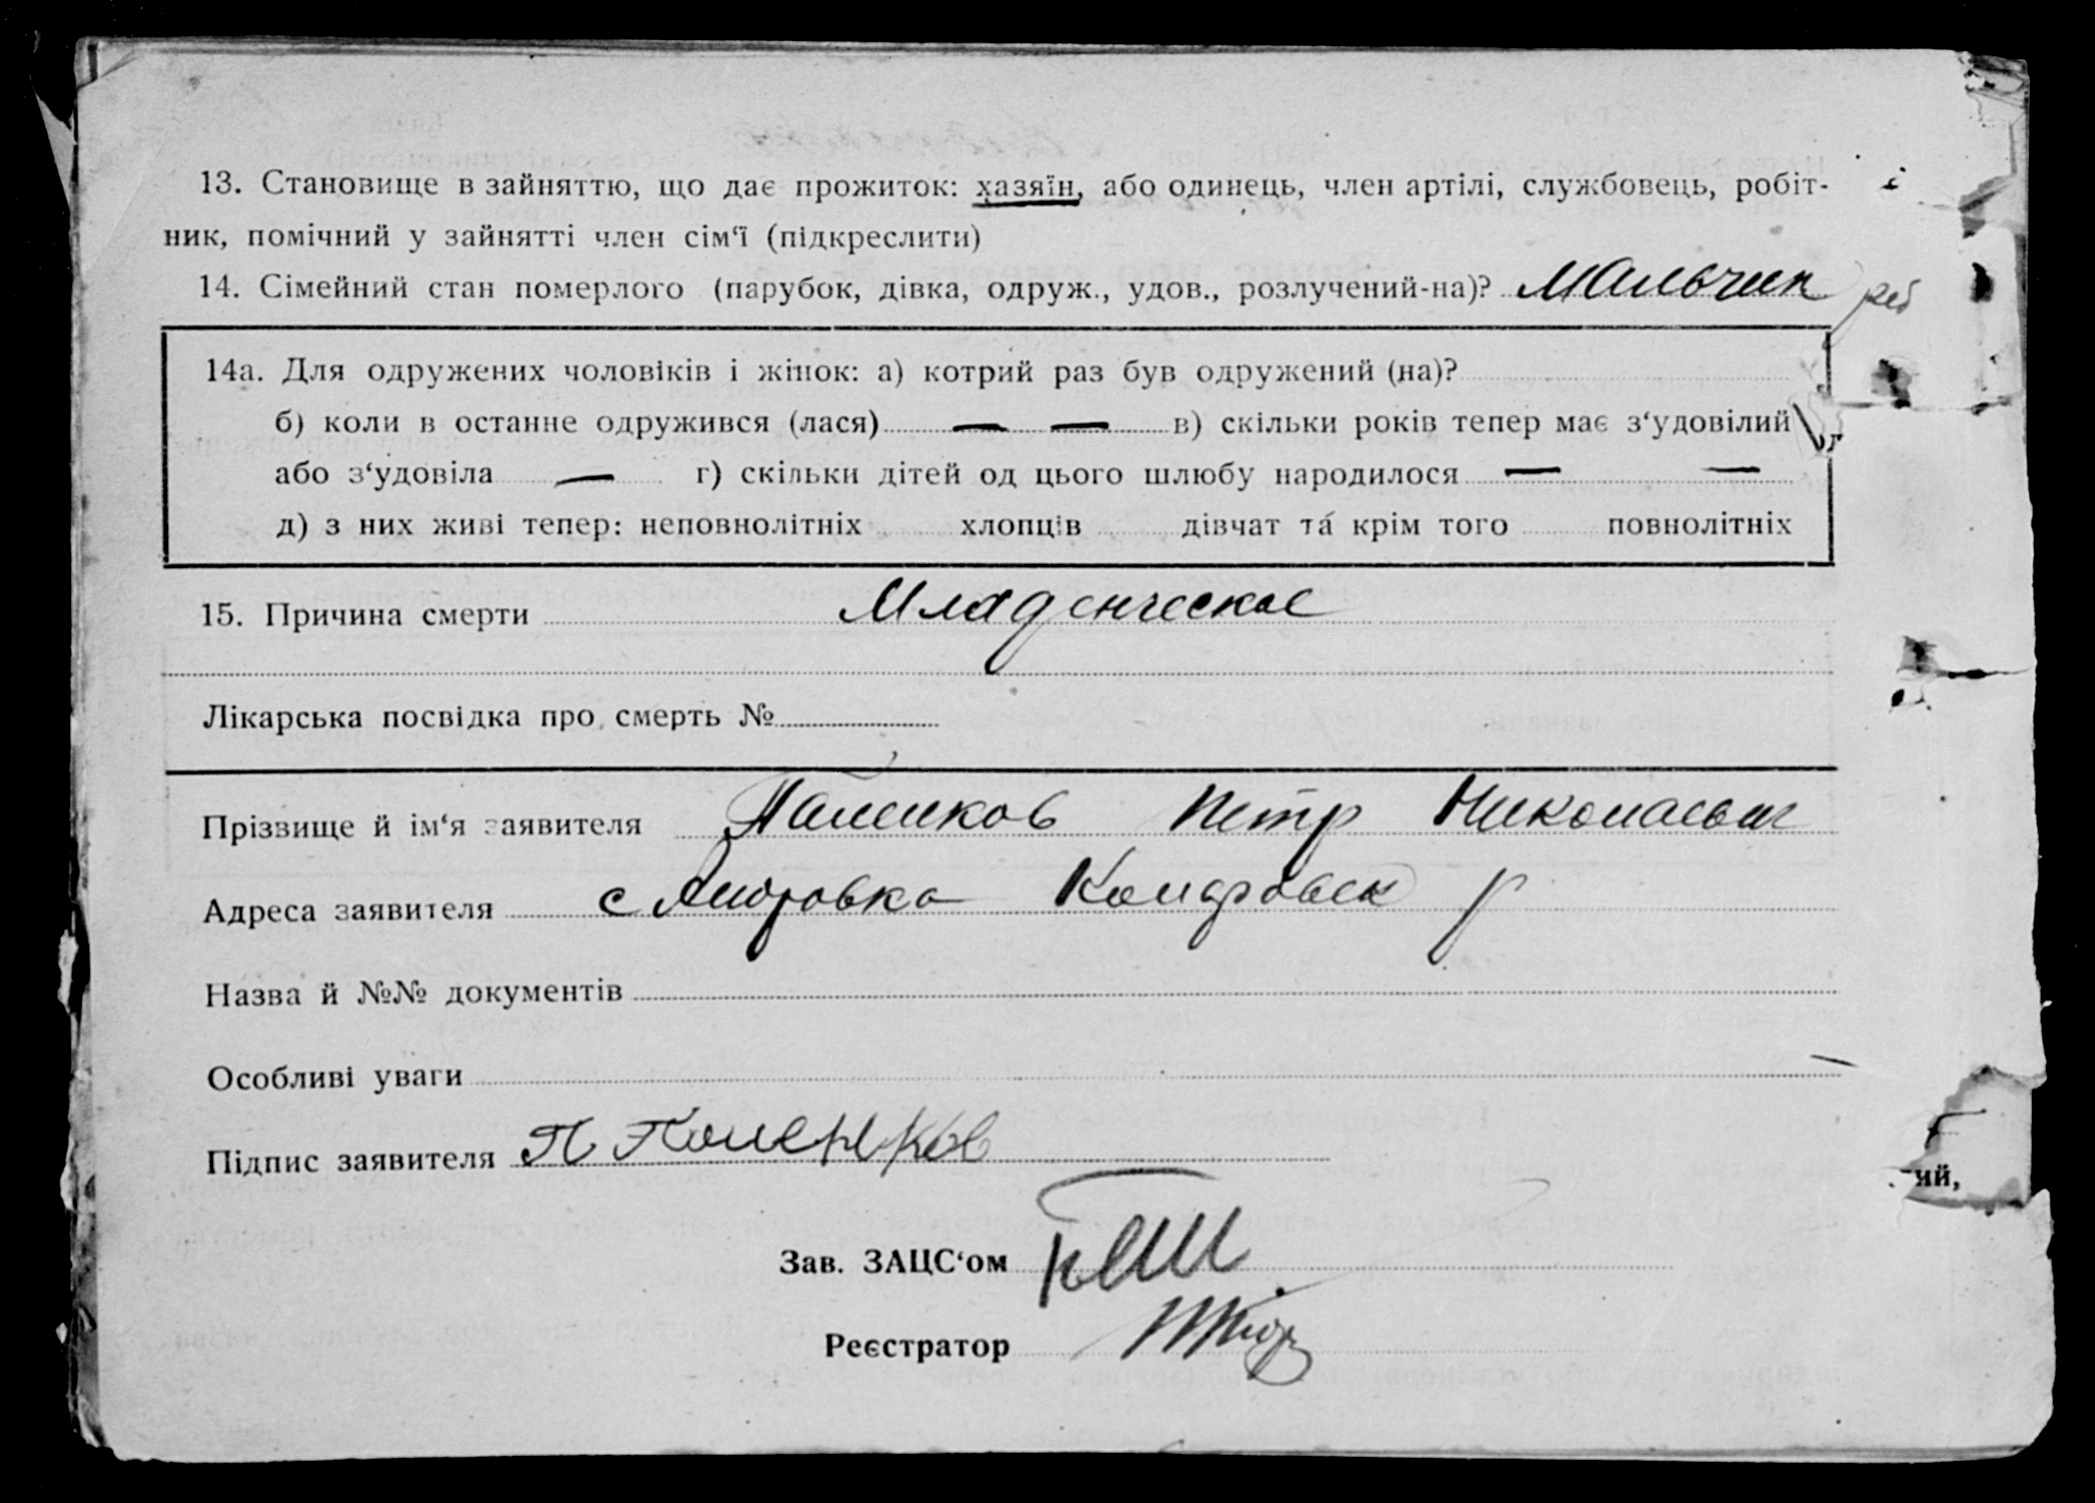 13. Становище в зайняттю, що дає прожиток: хазяїн, або одинець, член артілі, службовець, робіт-
ник, помічний у зайнятті член сім‘ї (підкреслити)
14. Сімейний стан померлого (парубок, дівка, одруж., удов., розлучений-на)? Мальчик
14а. Для одружених чоловіків і жінок: а) котрий раз був одружений (на)?
б) коли в останне одружився (лася) — — в) скільки років тепер має з‘удовілий
або з‘удовіла — г) скільки дітей од цього шлюбу народилося — —
д) з них живі тепер: неповнолітніх хлопців дівчат та крім того повнолітніх
15. Причина смерти Младенческае
Лікарська посвідка про смерть №
Прізвище й ім‘я заявителя Петр Николаевич
Адреса заявителя с
Назва й №№ документів
Особливі уваги
Підпис заявителя П
ий,
Зав. ЗАЦС‘ом
Реєстратор